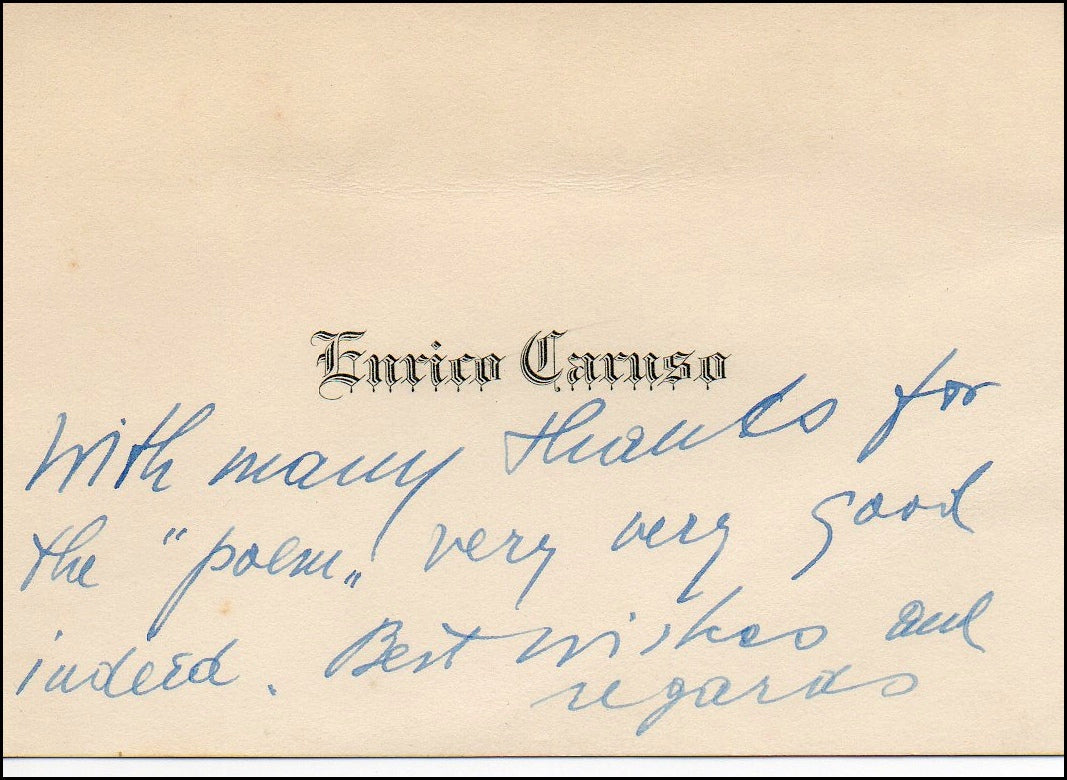 Enrico Caruso
With many thanks for
the "poem„! very very good
indeed. Best wishes and
regards